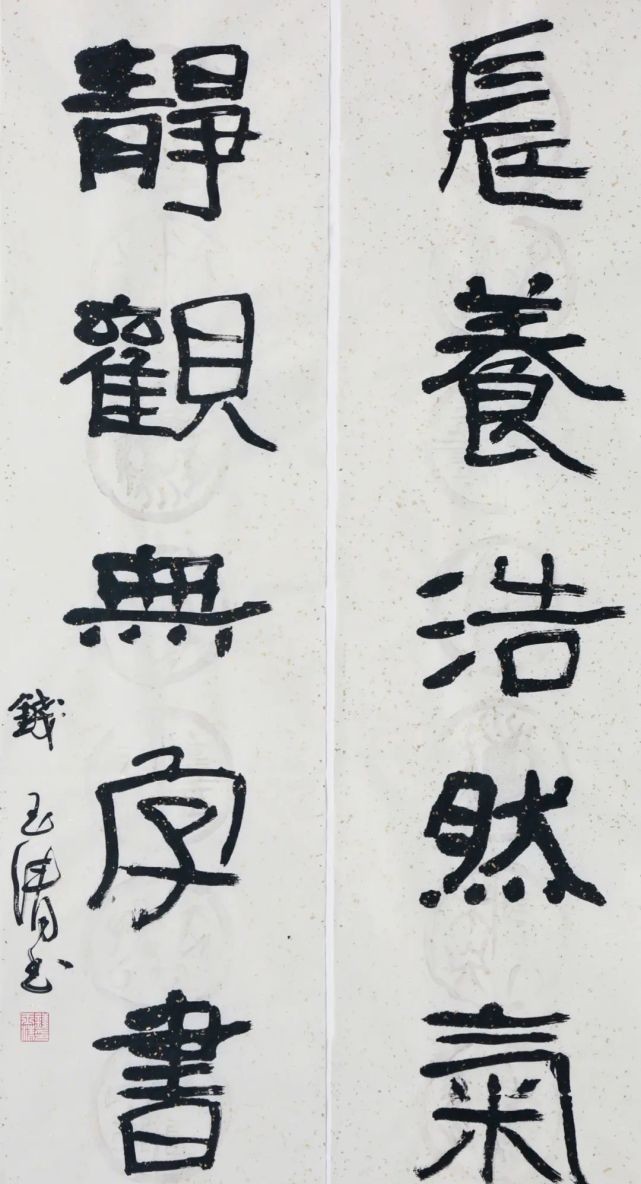 長養浩然氣
靜觀無字書
錢玉清書